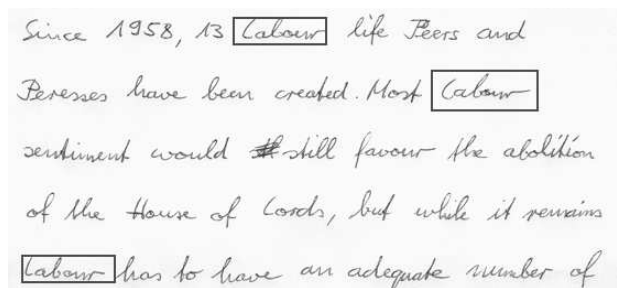 Since 1958, 13 Labour life Peers and
Peresses have been created. Most Labour
sentiment would still favour the abolition
of the House of Lords, but while it remains
Labour has to have an adequate number of